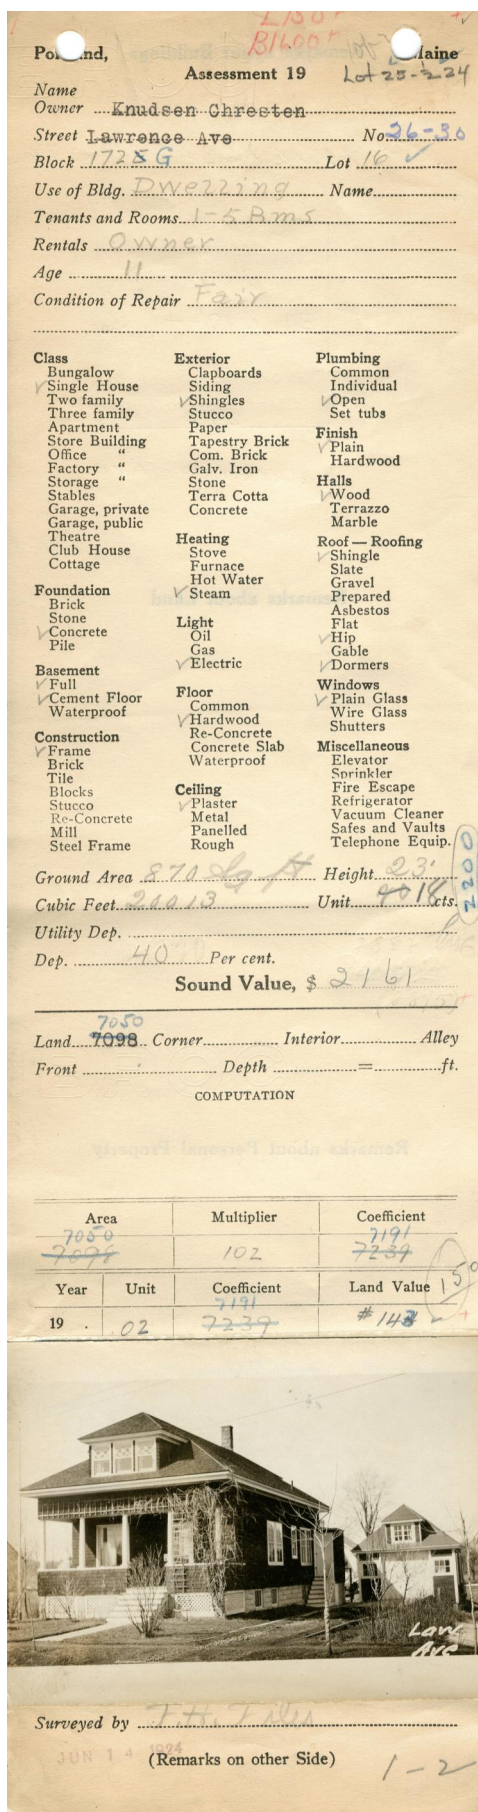 L 150 +
B 1600 +
Portland, Maine
Assessment 19
Lot 25-2-24
Name
Owner Knudsen Chresten
Street Lawrence Ave No. 26-30
Block 172 G Lot 16 ✓
Use of Bldg. Dwelling Name
Tenants and Rooms 1-5 Rms
Rentals Owner
Age 11
Condition of Repair Fair
Class
Bungalow
✓ Single House
Two family
Three family
Apartment
Store Building
Office "
Factory "
Storage "
Stables
Garage, private
Garage, public
Theatre
Club House
Cottage
Foundation
Brick
Stone
✓ Concrete
Pile
Basement
✓ Full
✓ Cement Floor
Waterproof
Construction
✓ Frame
Brick
Tile
Blocks
Stucco
Re-Concrete
Mill
Steel Frame
Exterior
Clapboards
Siding
✓ Shingles
Stucco
Paper
Tapestry Brick
Com. Brick
Galv. Iron
Stone
Terra Cotta
Concrete
Heating
Stove
Furnace
Hot Water
✓ Steam
Light
Oil
Gas
✓ Electric
Floor
Common
✓ Hardwood
Re-Concrete
Concrete Slab
Waterproof
Ceiling
✓ Plaster
Metal
Panelled
Rough
Plumbing
Common
Individual
✓ Open
Set tubs
Finish
✓ Plain
Hardwood
Halls
✓ Wood
Terrazzo
Marble
Roof — Roofing
✓ Shingle
Slate
Gravel
Prepared
Asbestos
Flat
✓ Hip
Gable
✓ Dormers
Windows
✓ Plain Glass
Wire Glass
Shutters
Miscellaneous
Elevator
Sprinkler
Fire Escape
Refrigerator
Vacuum Cleaner
Safes and Vaults
Telephone Equip.
2200
Ground Area 870 Sq ft Height 23'
Cubic Feet 20013 Unit 18 cts.
Utility Dep.
Dep. 40 Per cent.
Sound Value, $ 2161
7050
Land 7098 Corner Interior Alley
Front Depth = ft.
COMPUTATION
Area Multiplier Coefficient
7050 7191
7098 102 7239
Year Unit Coefficient Land Value 150
7191
19 .02 7239 # 143
Law
Ave
Surveyed by F.H. Files
JUN 14 1924
(Remarks on other Side)
1-2